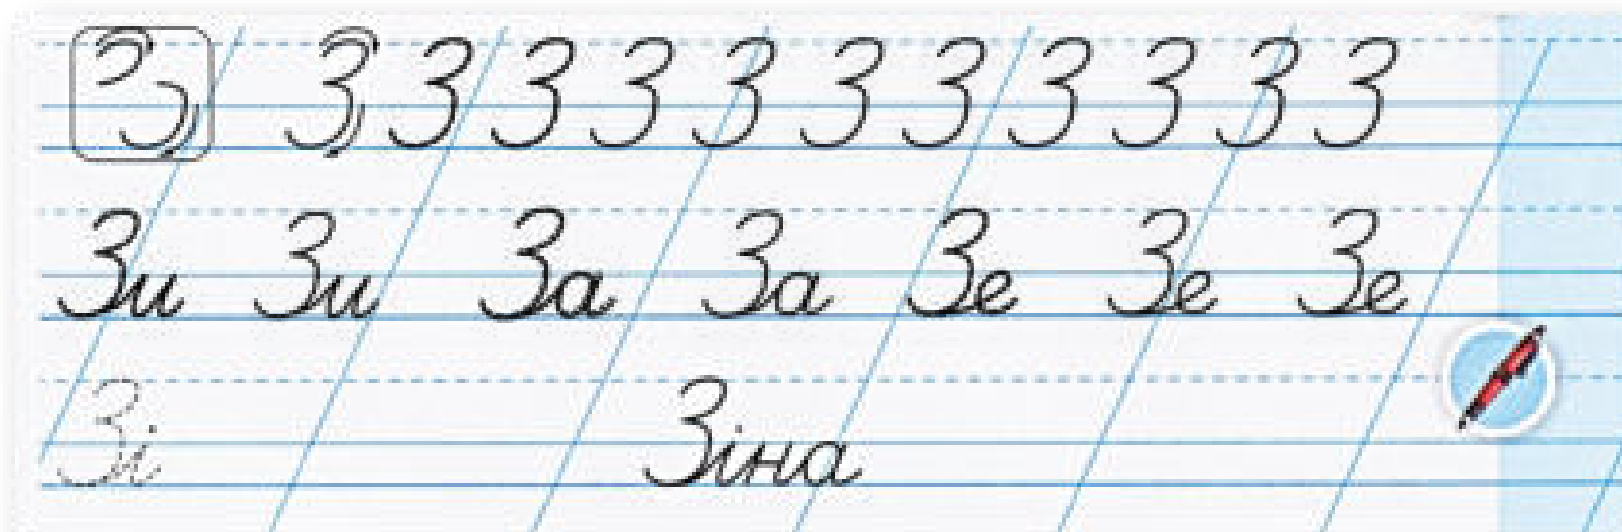 З З З З З З З З З З З З
Зи Зи За За Зе Зе Зе
Зі Зіна